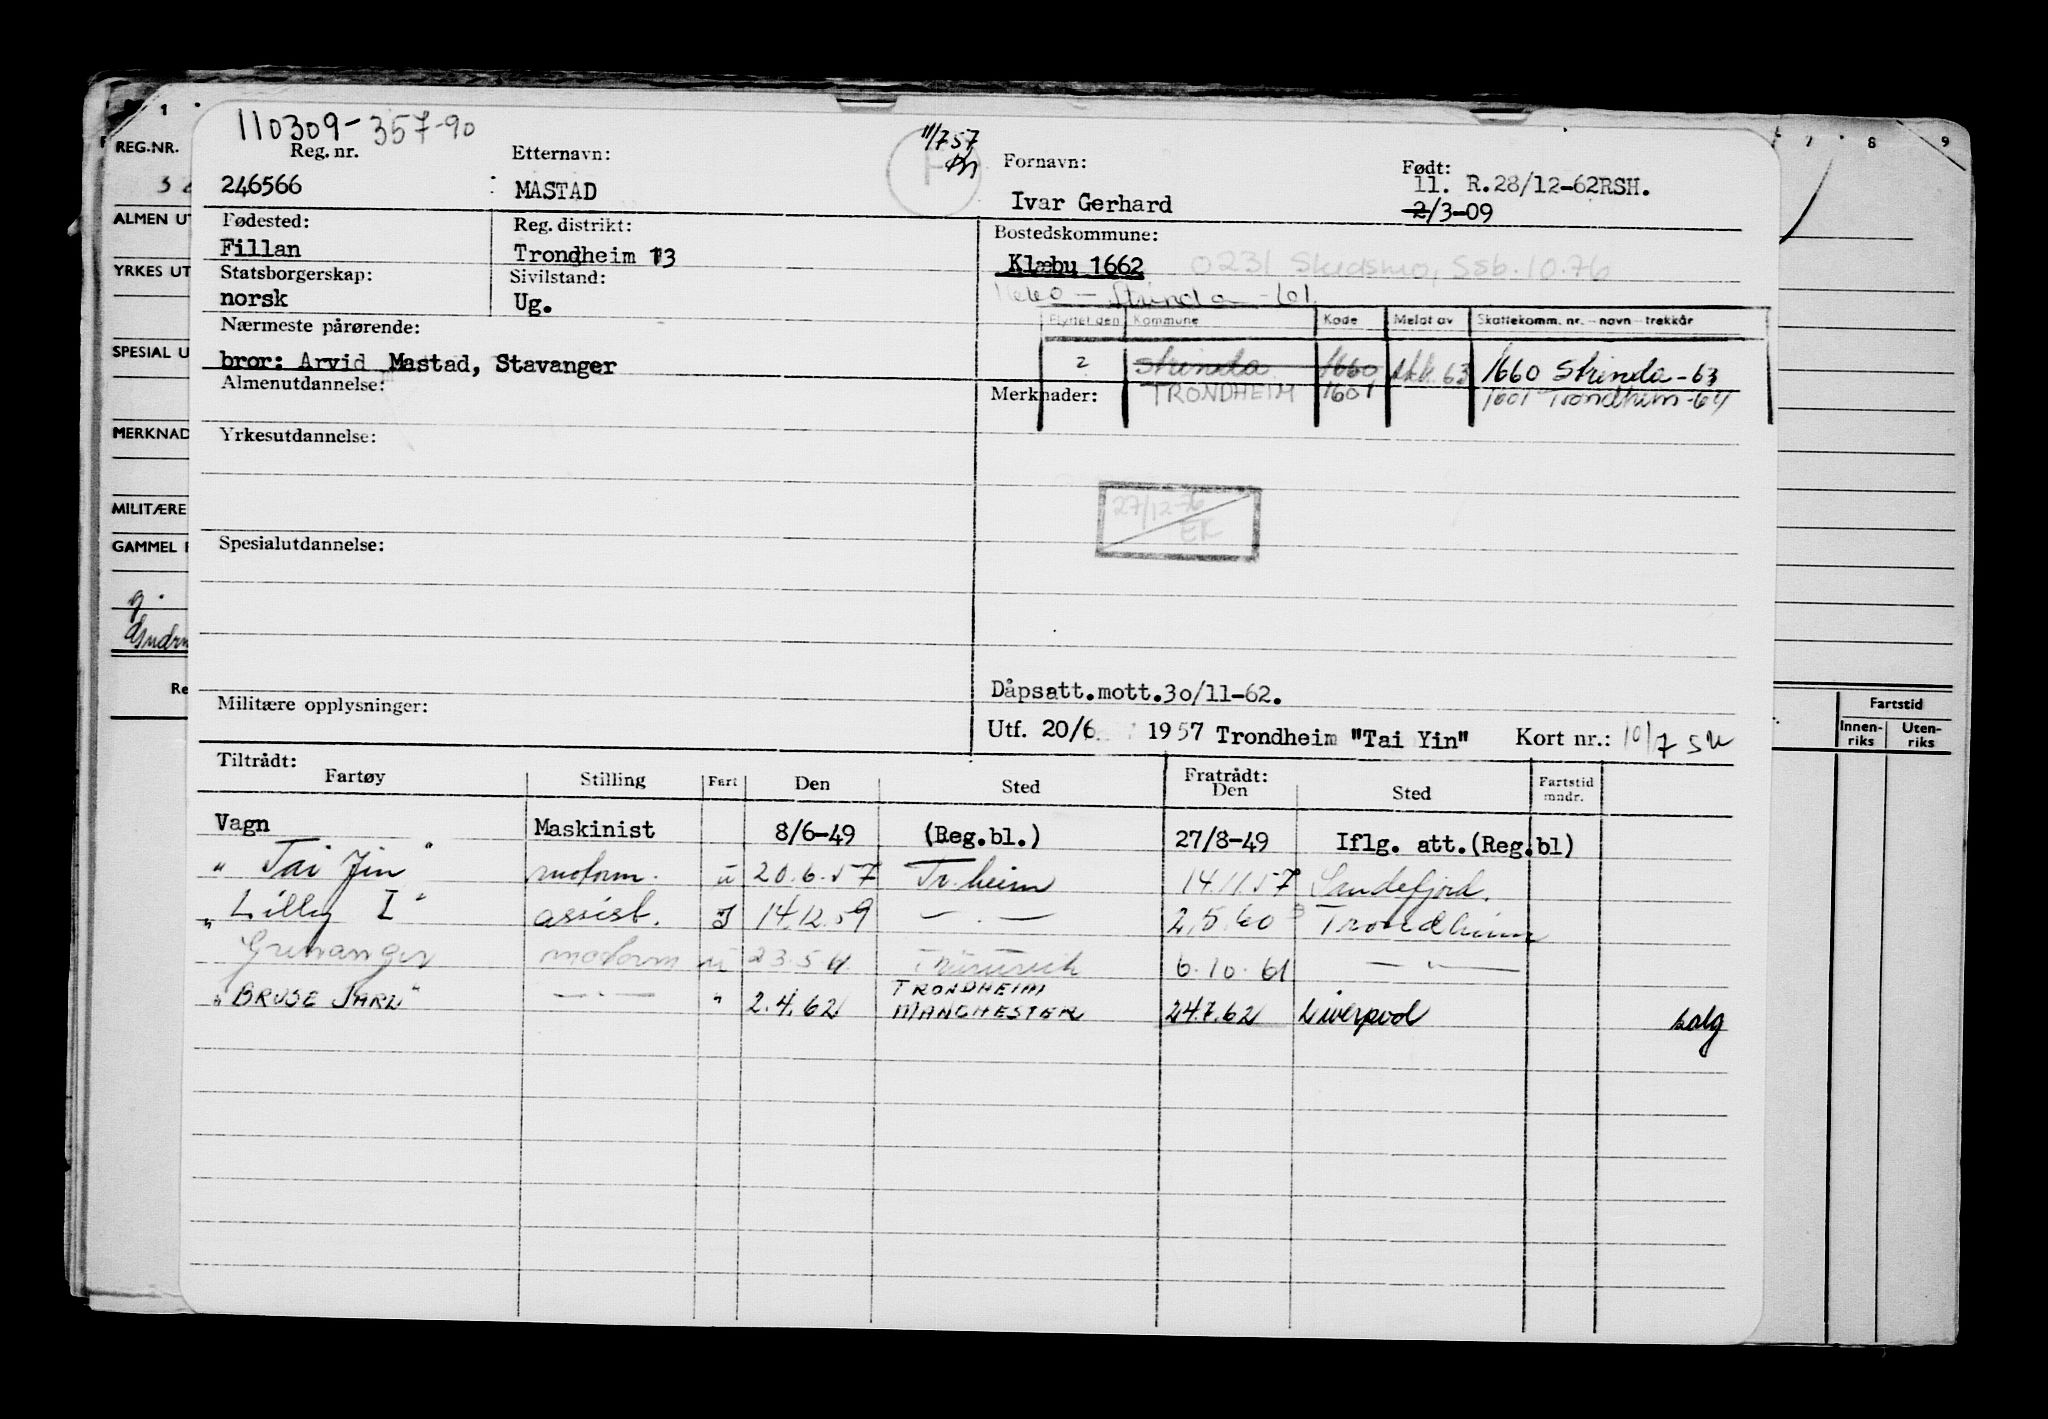 1 7 8 9
110309-357-90
REG.NR.
Reg. nr.
Etternavn:
11/7 57
Fornavn:
Født:
246566
MASTAD
Ivar Gerhard
11. R.28/12-62RSH.
2/3-09
ALMEN UT
Fødested:
Reg. distrikt:
Bostedskommune:
Fillan
Trondheim 13
Klæbu 1662
0231 Skedsmo, Ssb. 10.76
YRKES UT
Statsborgerskap:
Sivilstand:
norsk
Ug.
1660 - Strinda - 61
Nærmeste pårørende:
Flyttet den Kommune Kode Meldt av Skattekomm. nr. - navn - trekkår
SPESIAL U
bror: Arvid Mastad, Stavanger
2 Strinda 1660 63 1660 Strinda - 63
Almenutdannelse:
Merknader:
TRONDHEIM 1601 1601 Trondheim - 64
MERKNAD
Yrkesutdannelse:
27/12-76
EK
MILITÆRE
GAMMEL
Spesialutdannelse:
g.
Re
Dåpsatt.mott.30/11-62.
Militære opplysninger:
Utf. 20/6 1957 Trondheim "Tai Yin" Kort nr.: 10/7
Fartstid
Innen-
riks
Uten-
riks
Tiltrådt:
Fartøy
Stilling
Fart
Den
Sted
Fratrådt:
Den
Sted
Fartstid
mndr.
Vagn Maskinist 8/6-49 (Reg.bl.) 27/8-49 Iflg. att.(Reg.bl)
"Tai Jin" motorm. u 20.6.57 Tr.heim 14.11.57 Sandefjord.
"Lilly I" assist. I 14.12.59 — . — 2.5.60 Trondheim
Grenanger motorm u 23.5.61 6.10.61 — " —
TRONDHEIM
"BRUSE JARL" — . — " 2.4.62 MANCHESTER 24.7.62 Liverpool salg